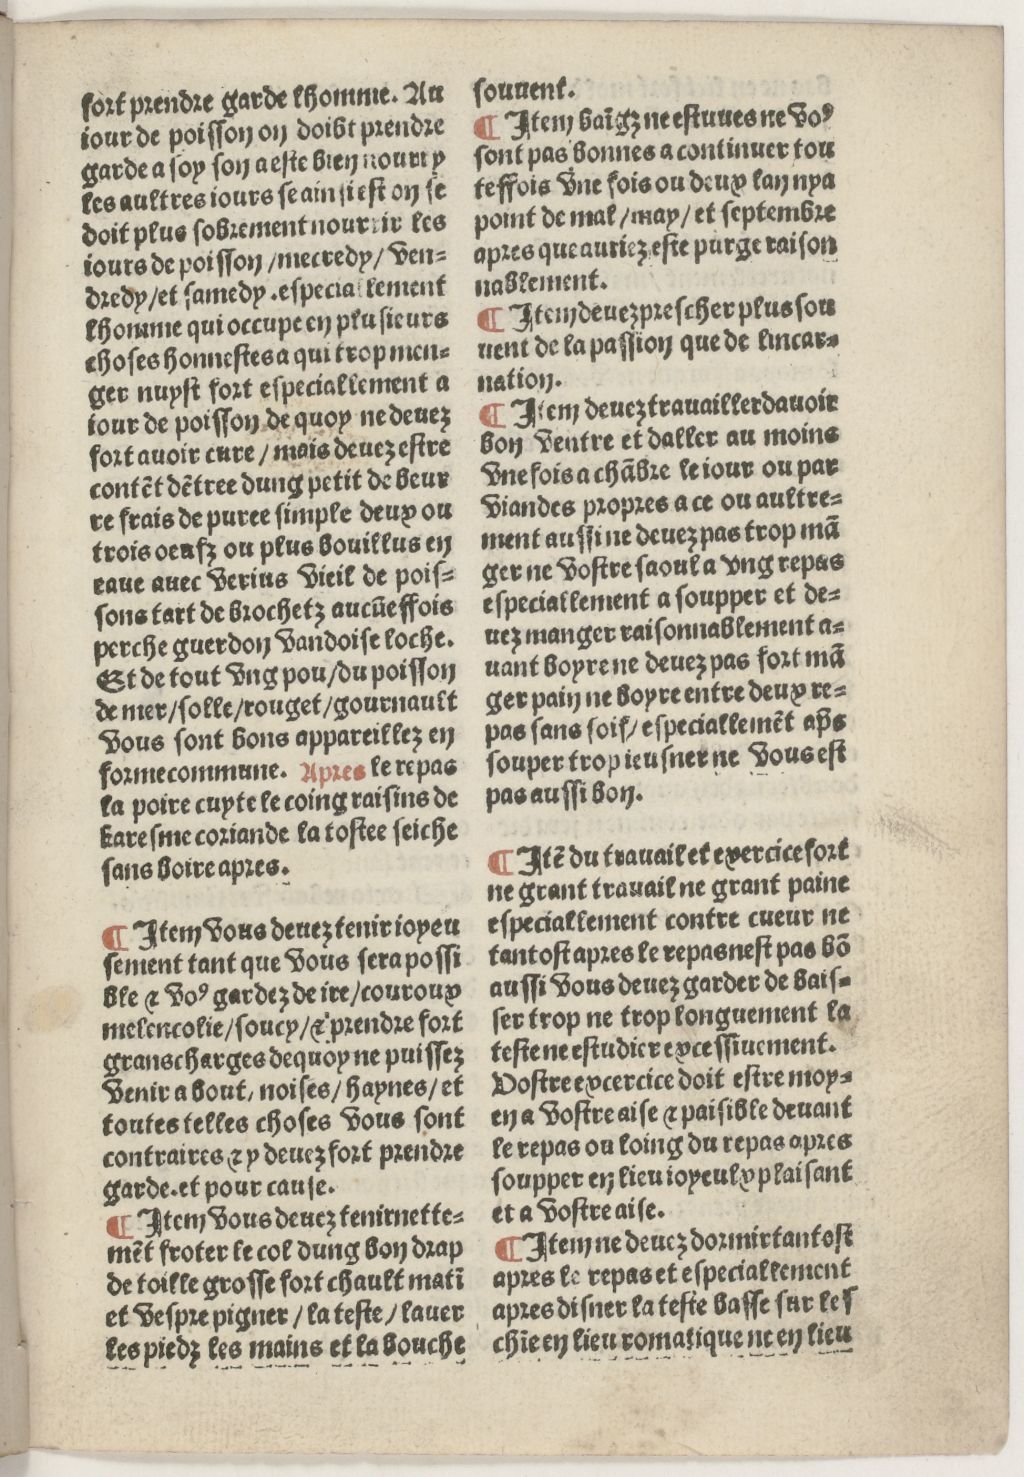 fort prendre garde lhomme. Au
iour de poisson on doibt prendre
garde a soy son a este bien nourry
les aultres iours se ainsi est on se
doit plus sobrement nourrir les
iours de poisson /mecredy/ Ven-
dredy/et samedy .especiallement
lhomme qui occupe en plusieurs
choses honnestes a qui trop men-
ger nuyst fort especiallement a
iour de poisson de quoy ne devez
fort auoir cure / mais deuez estre
contēt dētree dung petit de beur
re frais de puree simple deux ou
trois oeufz ou plus bouillus en
eaue auec Verius Vieil de pois-
sons tart de brochetz aucūeffois
perche guerdon Vandoise loche.
Et de tout Vng pou/du poisson
de mer/solle/rouget/gournault
Vous sont bons appareillez en
forme commune. Apres le repas
la poire cuyte le coing raisins de
karesme coriande la tostee seiche
sans boire apres.
¶ Item Vous deuez tenir ioyeu
sement tant que Vous sera possi
ble & Voꝰ gardez de ire/couroux
melencolie/soucy/& prendre fort
grans charges dequoy ne puissez
Venir a bout, noises/haynes/et
toutes telles choses Vous sont
contraires & y deuez fort prendre
garde.et pour cause.
¶ Item Vous deuez tenir nette-
mēt froter le col dung bon drap
de toille grosse fort chault matī
et Vespre pigner / la teste/ lauer
les piedz les mains et la bouche
souuent.
¶ Item baīgz ne estuues ne Voꝰ
sont pas bonnes a continuer tou
teffois Vne fois ou deux lan nya
point de mal /may/ et septembre
apres que auriez este purge raison
nablement.
¶ Item deuez prescher plus sou
uent de la passion que de lincar-
nation.
¶ Item deuez trauailler dauoir
bon Ventre et daller au moins
Vne fois a chābre le iour ou par
Viandes propres a ce ou aultre-
ment aussi ne deuez pas trop mā
ger ne Vostre saoul a Vng repas
especiallement a soupper et de-
uez manger raisonnablement a-
uant boyre ne deuez pas fort mā
ger pain ne boyre entre deux re-
pas sans soif/ especiallemēt ap̄s
souper trop ieusner ne Vous est
pas aussi bon.
¶ Itē du trauail et exercice fort
ne grant trauail ne grant paine
especiallement contre cueur ne
tantost apres le repas nest pas bō
aussi Vous deuez garder de bais-
ser trop ne trop longuement la
teste ne estudier excessiuement.
Vostre excercice doit estre moy-
en a Vostre aise & paisible deuant
le repas ou loing du repas apres
soupper en lieu ioyeulx plaisant
et a Vostre aise.
¶ Item ne deuez dormir tantost
apres le repas et especiallement
apres disner la teste basse sur les
chīe en lieu romatique ne en lieu